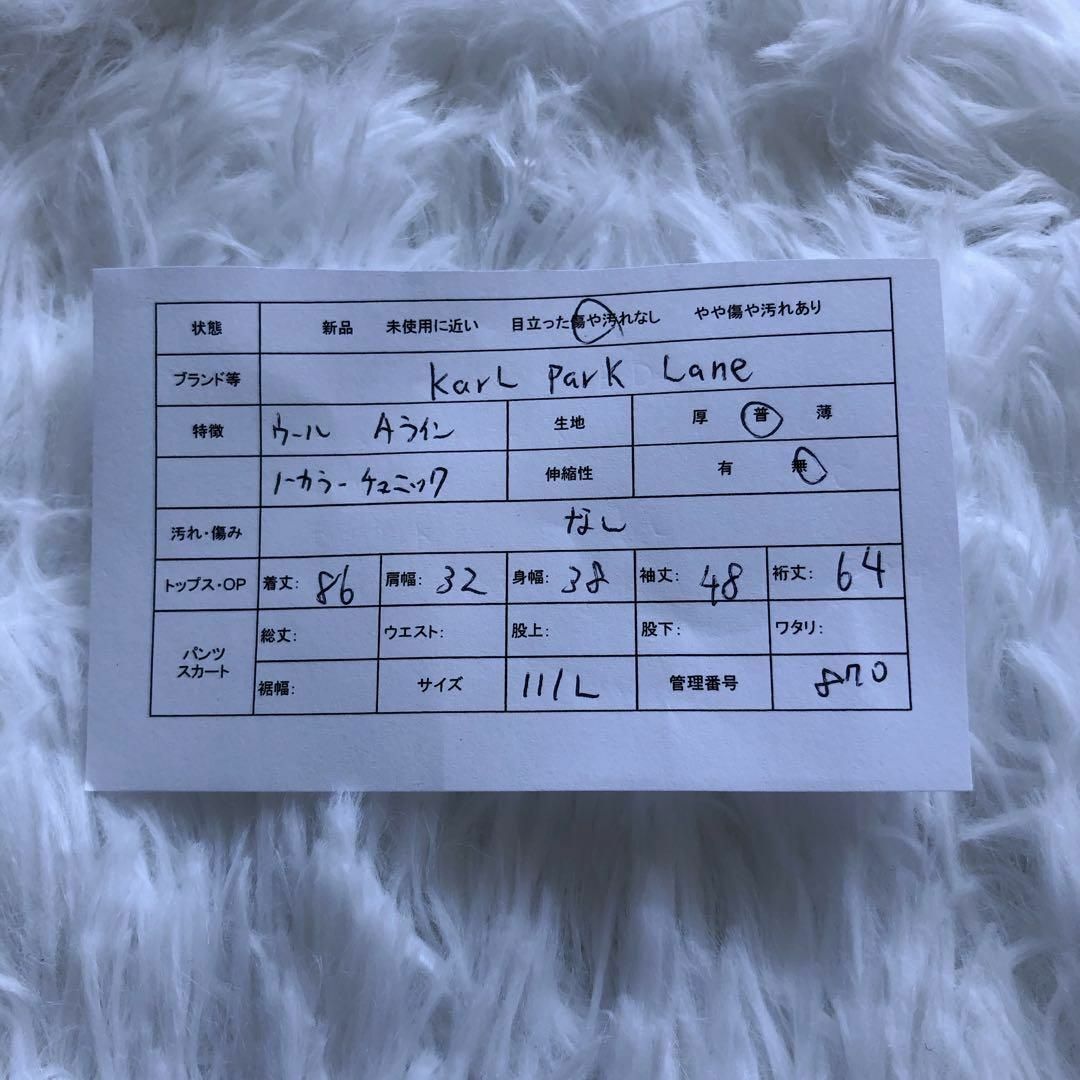 状態 新品 未使用に近い 目立った傷や汚れなし やや傷や汚れあり
ブランド等 Karl Park Lane
特徴 ウール Aライン 生地 厚 普 薄
ノーカラーチュニック 伸縮性 有 無
汚れ・傷み なし
トップス・OP 着丈: 86 肩幅: 32 身幅: 38 袖丈: 48 裄丈: 64
パンツ スカート 総丈: ウエスト: 股上: 股下: ワタリ:
裾幅: サイズ 11/L 管理番号 870